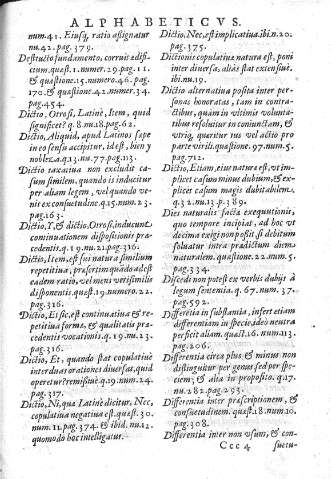 ALPHABETICVS.
num.41. Eiusq; ratio assignatur
nu.42. pag.379.
Destructo fundamento, corruit ædifi-
cium. quæst.1. numer.29. pag.11.
& quæstione.15. numero.46. pag.
170. & quæstione.42. numer.34.
pag.454.
Dictio, Otrosi, Latinè, Item, quid
significet? q.8. nu.18. pag.62.
Dictio, Aliquid, apud Latinos sæpe
in eo sensu accipitur, id est, bien y
noblez.a q.13. na.77. pag.113.
Dictio taxatiua non excludit ca-
sum similem, quando is inducitur
per aliam legem, vel quando ve-
nit ex consuetudine. q.15. num.23.
pag.163.
Dictio, Y, & dictio, Otrosi, inducunt
continuationem dispositionis præ-
cedentis. q.19. nu.21. pag.316.
Dictio, Item, est sui natura similium
repetitiua, præsertim quando adest
eadem ratio, vel mens verisimilis
disponentis. quæst.19. numero.22.
pag.316.
Dictio, Et sic, est continuatiua & re-
petitiua formæ, & qualitatis præ-
cedentis vocationis. q.19. nu.23.
pag.316.
Dictio, Et, quando stat copulatiuè
inter duas orationes diuersas, quid
operetur? remissiuè. q.19. num.24.
pag.317.
Dictio, Ni, quæ Latinè dicitur, Nec,
copulatiua negatiua est. quæst.30.
num.11. pag.374. & ibid. nu.12.
quomodo hoc intelligatur.
Dictio, Nec, est implicatiua. ibi. n.20.
pag.375.
Dictiones copulatiuæ natura est, poni
inter diuersa: aliàs stat extensiuè.
ibi. nu.19.
Dictio alternatiua posita inter per-
sonas honoratas, tam in contra-
ctibus, quàm in vltimis volunta-
tibus resoluitur in coniunctam, &
vtriq; quæritur ius vel actio pro
parte virili. quæstione.97. num.5.
pag.712.
Dictio, Etiam, eius natura est, vt im-
plicet casum minus dubium, & ex-
plicet casum magis dubitabilem.
q.32. nu.13. p.389.
Dies naturalis facta exequutionis,
quo tempore incipiat, ad hoc vt
decima exigi non possit, si debitum
soluatur intra prædictum diem
naturalem. quæstione.22. num.5.
pag.334.
Discedi non potest ex verbis dubijs à
legum sententia. q.67. num.37.
pag.592.
Differentia in substantia, infert etiam
differentiam in specie: ideo neutra
perficit aliam. quæst.16. num.113.
pag.206.
Differentia circa plus & minus non
distinguitur per genus sed per spe-
ciem; & alia in proposito. q.17.
nu.282. pag.293.
Differentia inter præscriptionem, &
consuetudinem. quæst.18. num.10.
pag.308.
Differentia inter non vsum, & con-
Ccc 4 suetu-